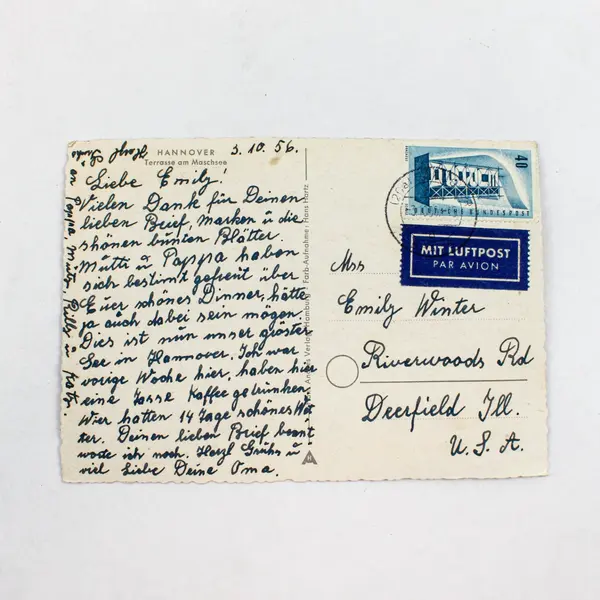 HANNOVER
Terrasse am Maschsee
3.10.56.
Liebe Emily!
Vielen Dank für Deinen
lieben Brief, Marken u die
schönen bunten Blätter.
Mutti u Pappa haben
sich bestimmt gefreut über
Euer schönes Dinner, hätte
ja auch dabei sein mögen.
Dies ist nun unser gröster
See in Hannover. Ich war
vorige Woche hier, haben hier
eine Tasse Kaffee getrunken
Wier hatten 14 Tage schönes Wet
ter. Deinen lieben Brief beant
worte ich noch. Herzl Grühse u
viel Liebe Deine Oma.
Herzl Grühse
an Pappa, Mutti,
Farb-Aufnahme: Hans Hartz
Verlag Hamburg
40
DEUTSCHE BUNDESPOST
MIT LUFTPOST
PAR AVION
Mss
Emily Winter
Riverwoods Rd
Deerfield Ill.
U.S.A.